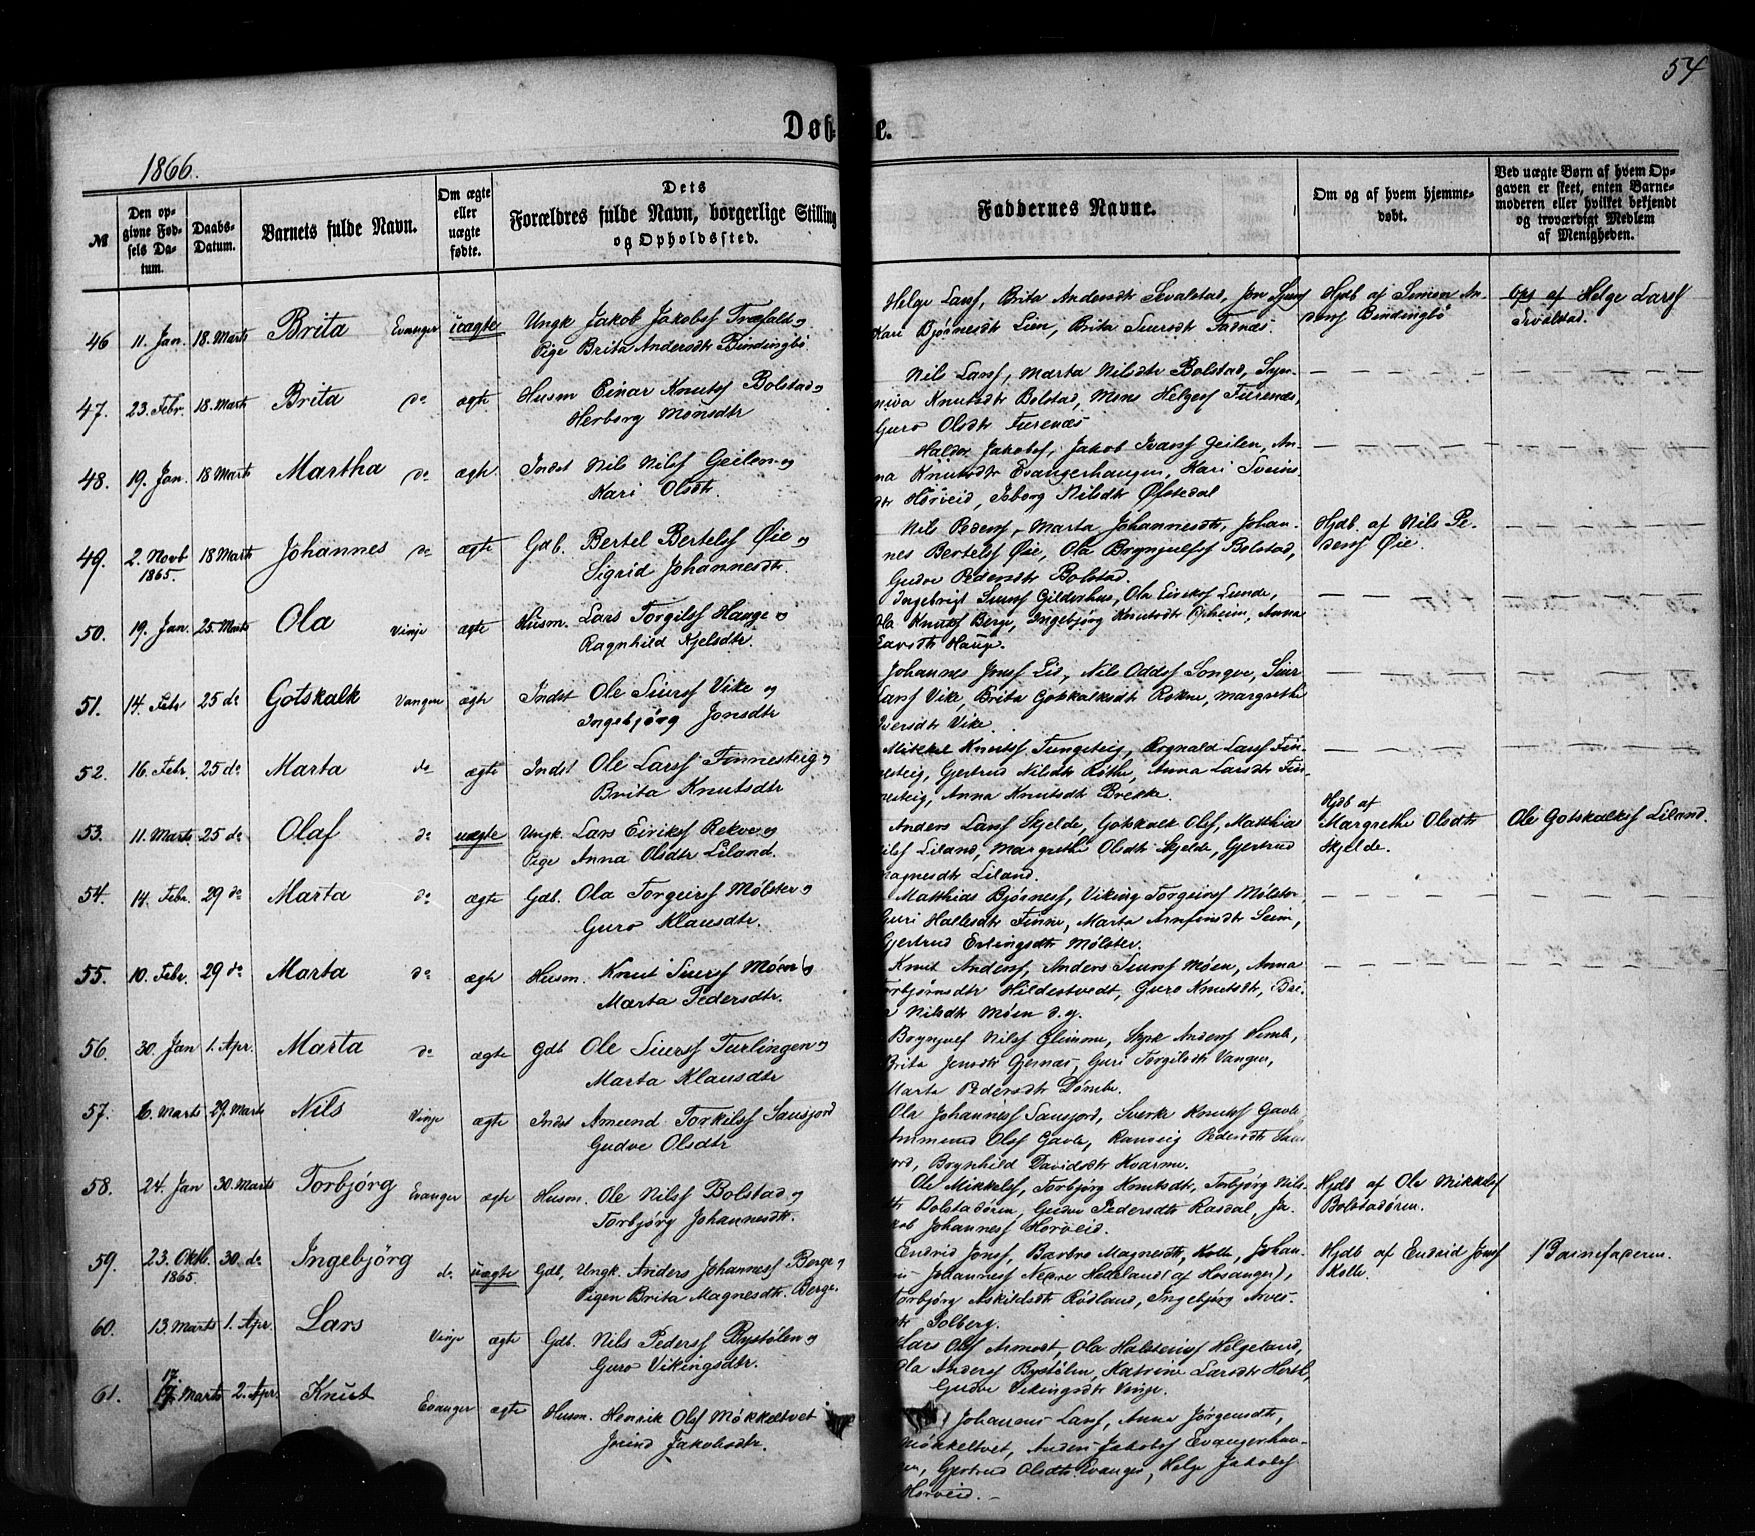 54
Døbte.
1866.
№
Den opgivne Fødsels Datum.
Daabs-Datum.
Barnets fulde Navn.
Om ægte eller uægte fødte.
Dets Forældres fulde Navn, borgerlige Stilling og Opholdssted.
Faddernes Navne.
Om og af hvem hjemmedøbt.
Ved uægte Børn af hvem Opgaven er skeet, enten Barnemoderen eller hvilket bekjendt og troværdigt Medlem af Menigheden.
46 11. Jan. 18. Marts Brita Evanger uægte Ungk Jakob Jakobsf Træfald og
Pige Brita Andersdtr Bindingbø.
Helge Larsf, Brita Andersdtr Sevalstad, Jon
Kari Bjørnesdtr Lien, Brita Siursdtr Fadnæs.
Hjdb af Simon An-
dersf Bindingbø
Helge Larsf
47. 23. Febr. 18. Marts Brita do ægte Husm Einar Knutsf Bolstad og
Herborg Monsdtr
Nils Larsf, Marta Nilsdtr Bolstad, Syn-
niva Knutsdtr Bolstad, Mons Helgesf Furenæs,
Guro Olsdtr Furenæs
48. 19. Jan. 18 Marts Martha do ægte Indst Nils Nilsf Geilen og
Kari Olsdtr.
Haldor Jakobsf, Jakob Ivarsf Geilen, An-
na Knutsdtr Evangerhaugen, Kari Sveins-
dtr Horveid, Isborg Nilsdtr Øfstedal
49. 2. Novb 1865. 18 Marts Johannes do ægte Gdb. Bertel Bertelsf Øie og
Sigrid Johannesdtr.
Nils Pedersf, Marta Johannesdtr, Johan-
nes Bertelsf Øie, Ola Brynjulfsf Bolstad,
Gudve Pedersdtr Bolstad.
Hjdb. af Nils Pe-
dersf Øie.
50. 19. Jan. 25. Marts Ola Vinje ægte Husm. Lars Torgilsf Hauge og
Ragnhild Kjelsdtr.
Ingebrigt Siursf Gilderhus, Ola Eiriksf Lunde,
Ola Knutsf Berge, Ingebjørg Knutsdtr Opheim, Anna
Larsdtr Hauge.
51. 14. Febr 25 do Gotskalk Vangen ægte Indst Ole Siursf Vike og
Ingebjørg Jonsdtr
Johannes Jonsf Lid, Nils Oddsf Songve, Siur
Larsf Vike, Brita Gotskalksdtr Rokne, Margrethe
Iversdtr Vike
52. 16. Febr. 25 do Marta do ægte Indst Ole Larsf Finnesteig og
Brita Knutsdtr
Mikkel Knutsf Tungeteig, Rognald Larsf Fin-
nesteig, Gjertrud Nilsdtr Rothe, Anna Larsdtr Fin-
nesteig, Anna Knutsdtr Brekke.
53. 11. Marts 25 do Olaf do uægte Ungk. Lars Eiriksf Rekve og
Pige Anna Olsdtr Liland.
Anders Larsf Skjelde, Gotskalk Olsf, Matthias
Nilsf Liland, Margrethe Olsdtr Skjelde, Gjertrud
Magnesdtr Liland.
Hjdb af
Margrethe Olsdtr
Skjelde.
Ole Gotskalksf Liland.
54. 14. Febr. 29 do Marta do ægte Gdb. Ola Torgeirsf Mølster og
Guro Klausdtr.
Matthias Bjørnesf, Viking Torgeirsf Mølster,
Guri Hallesdtr Finne, Marta Arnfinsdtr Seim,
Gjertrud Erlingsdtr Mølster.
55. 10. Febr. 29 do Marta do ægte Husm. Knut Siursf Møen og
Marta Pedersdtr.
Knut Andersf, Anders Siursf Møen, Anna
Torbjørnsdtr Hildestvedt, Guro Knutsdtr, Bri-
ta Nilsdtr Møen
56. 30. Jan 1. Apr. Marta do ægte Gdb Ole Siursf Turlingen og
Marta Klausdtr
Brynjulf Nilsf Glimme, Andersf
Brita Jensdtr Gjernæs, Guri Torgilsdtr Vangen,
Marta Pedersdtr Dømbe.
57. 6. Marts 29. Marts Nils Vinje ægte Indst Amund Torkilsf Sausjord
Gudve Olsdtr
Ola Johannesf Sausjord, Sverke Knutsf Gavle,
Ammund Olsf Gavle, Ranveig Pedersdtr Saus-
jord, Brynhild Davidsdtr Kvarme.
58. 24. Jan 30. Marts Torbjørg Evanger ægte Husm. Ole Nilsf Bolstad og
Torbjørg Johannesdtr.
Ole Mikkelsf, Torbjørg Knutsdtr, Torbjørg Nils-
dtr Bolstadøren, Gudve Pedersdtr Rasdal, Ja-
kob Johannesf Horveid.
Hjdb af Ole Mikkelsf
Bolstadøren.
59. 23. Oktb. 1865. 30. do Ingebjørg do uægte Gdb, Ungk. Anders Johannesf Berge og
Pigen Brita Magnesdtr. Berge.
Endrid Jonsf, Barbro Magnesdtr, Kolle, Johan-
nes Johannesf Nedre Helleland (af Hosanger),
Torbjørg Askildsdtr Rødland, Ingebjørg Arves-
dtr Solberg.
Hjdb af Endrid Jonsf
Kolle.
Barnefaderen.
60. 13. Marts 1. Apr. Lars Vinje ægte Gdb. Nils Pedersf Bystølen og
Guro Vikingsdtr.
Lars Olsf Armost, Ola Halsteinsf Helgeland,
Ola Andersf Bystølen, Katrine Larsdtr
Gudve Vikingsdtr Vinje.
61. 17. Marts 2. Apr. Knut Evanger ægte Husm. Henrik Olsf Møkkeltvet
Jorind Jakobsdtr.
Johannes Larsf, Anna Jørgensdtr,
Møkkeltvet, Anders Jakobsf Evangerhau-
gen, Gjertrud Olsdtr Evanger, Helge Jakobsf
Horveid.